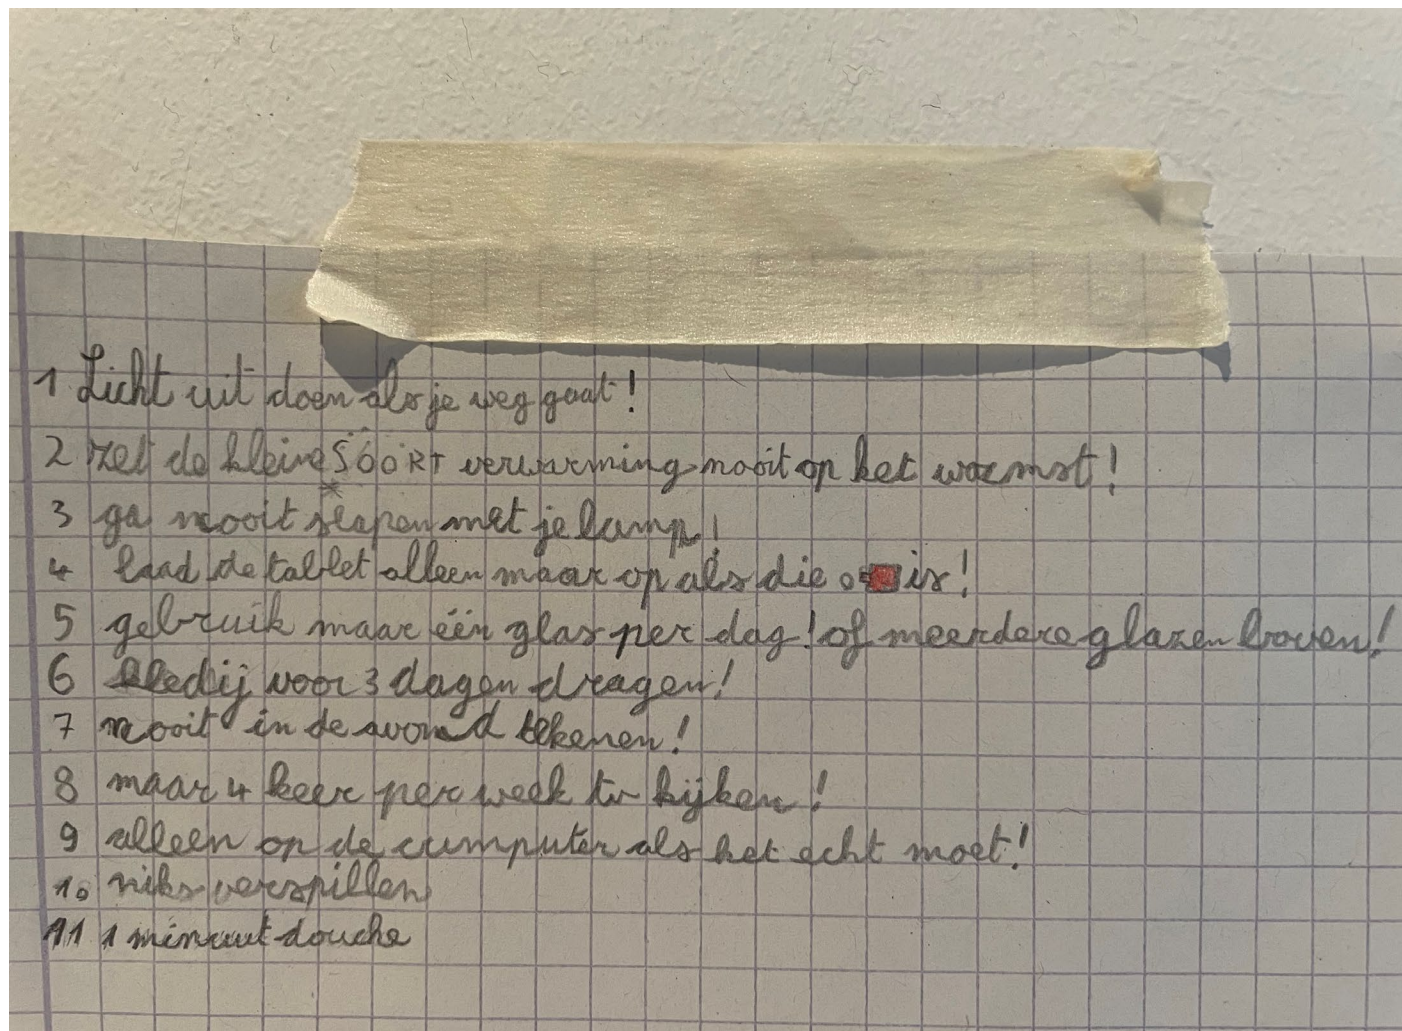 1 Licht uit doen als je weg gaat!
2 zet de kleine SOORT verwarming nooit op het warmst!
3 ga nooit slapen met je lamp!
4 laad de tablet alleen maar op als die is!
5 gebruik maar één glas per dag! of meerdere glazen boven!
6 kledij voor 3 dagen dragen!
7 nooit in de avond tekenen!
8 maar 4 keer per week tv kijken!
9 alleen op de cumputer als het echt moet!
10 niks verspillen
11 1 minuut douche